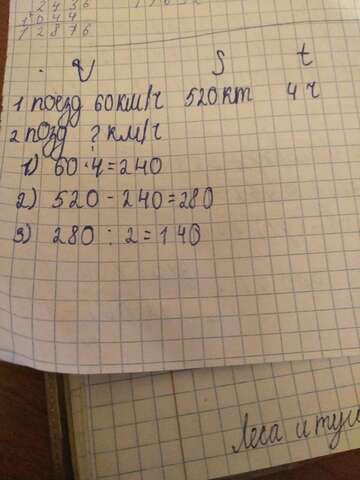 2436
1044
12876
V S t
1 поезд 60км/ч 520км 4ч
2 позд ? км/ч
1) 60·4=240
2) 520-240=280
3) 280:2=140
Леса и тун